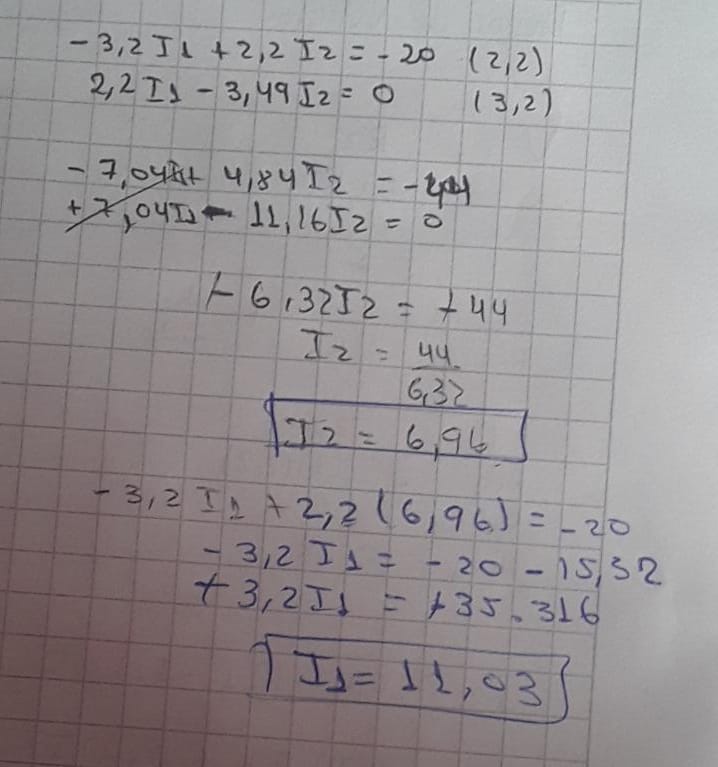 -3,2 I1 + 2,2 I2 = -20 (2,2)
2,2 I1 - 3,49 I2 = 0 (3,2)
-7,04 I1 + 4,84 I2 = -44
+7,04 I1 - 11,16 I2 = 0
-6,32 I2 = +44
I2 = 44
6,32
I2 = 6,96
-3,2 I1 + 2,2 (6,96) = -20
-3,2 I1 = -20 - 15,32
+3,2 I1 = +35.316
I1 = 11,03